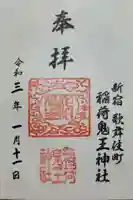 新宿 歌舞伎町
稲荷鬼王神社
奉拝
令和三年一月十一日